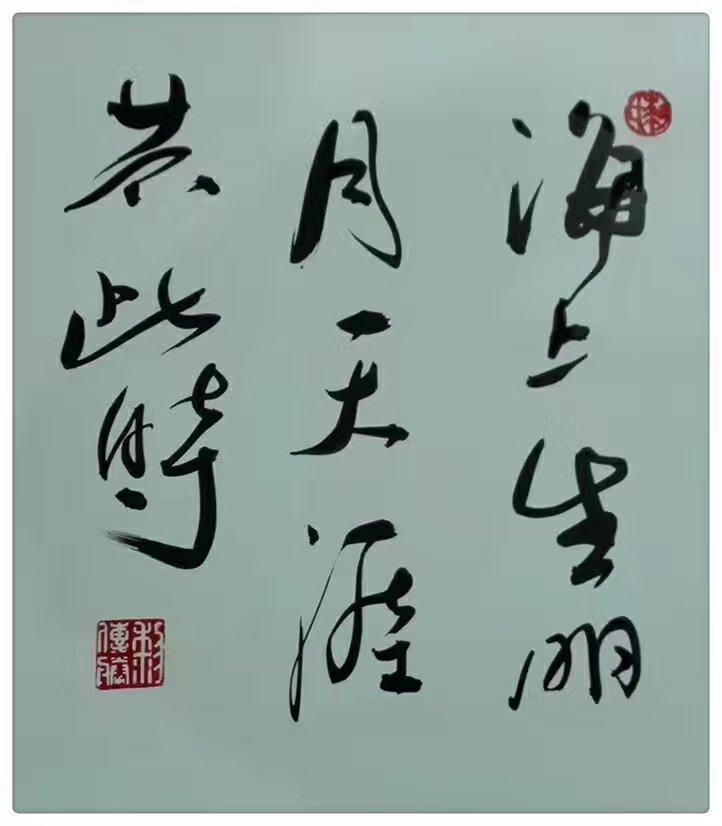 海上生明
月天涯
共此時